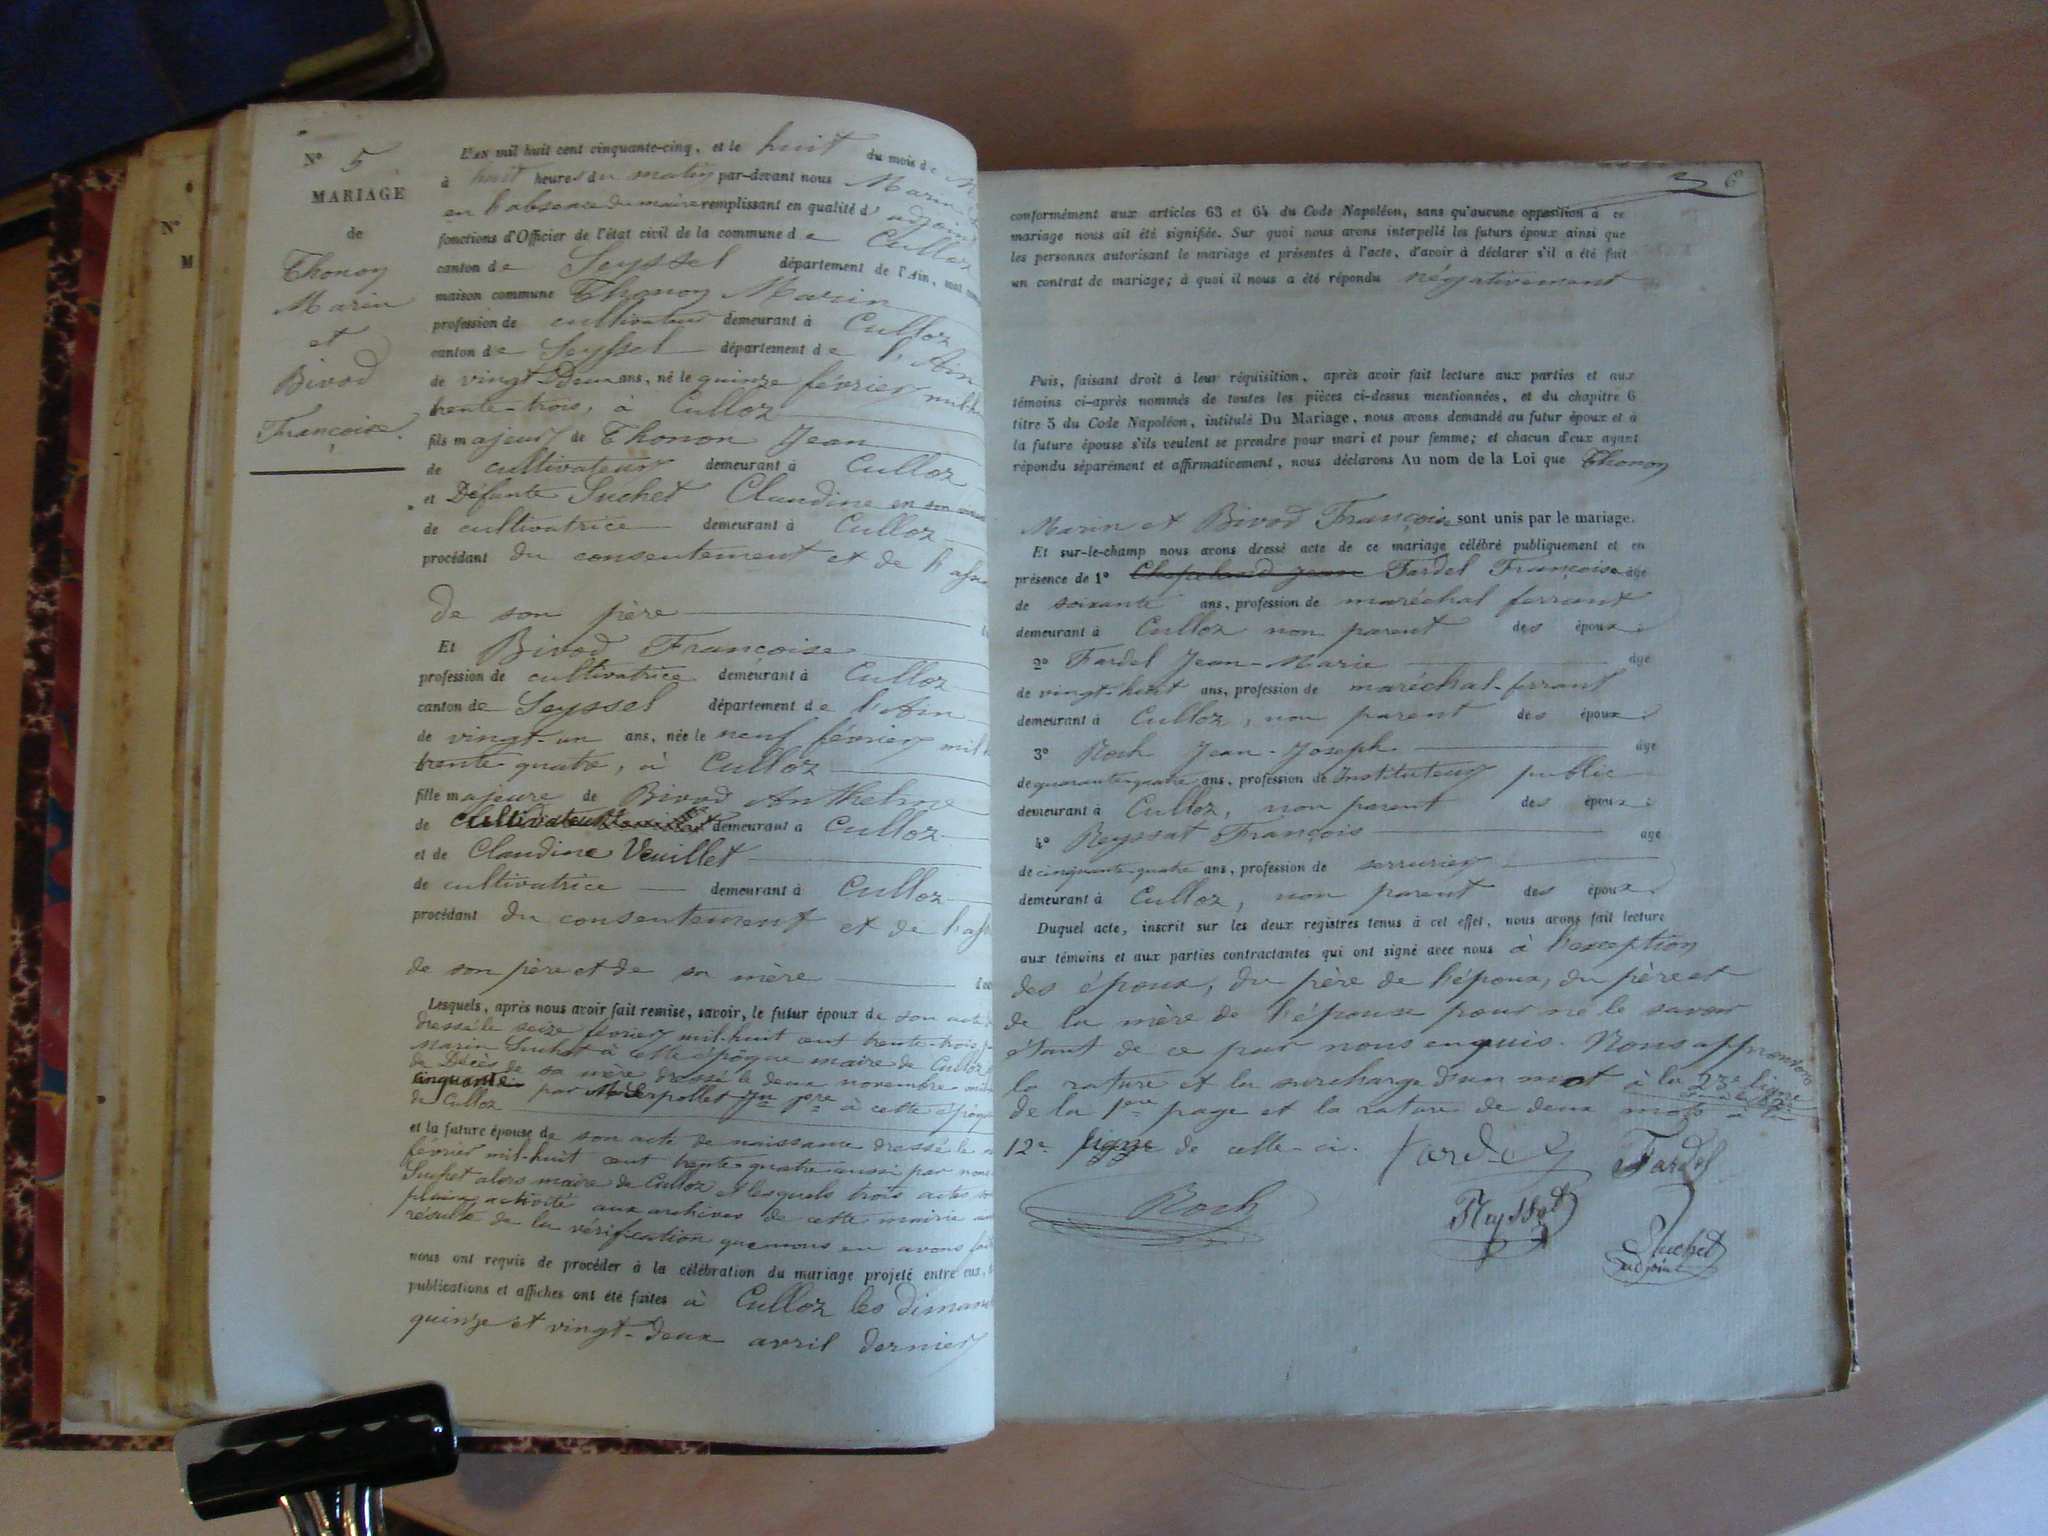 N° 5
MARIAGE
de
Thonon
Marin
et
Bivod
Françoise.
N°
M
L'AN mil huit cent cinquante-cinq, et le huit du mois de M
à huit heures du matin par-devant nous Marin
en l'absence du maire remplissant en qualité d'adjoint
fonctions d'Officier de l'état civil de la commune de Culloz
canton de Seyssel département de l'Ain, sont
maison commune Thonon Marin
profession de cultivateur demeurant à Culloz
canton de Seyssel département de l'Ain
de vingt-Deux ans, né le quinze février mil-h
trente-trois, à Culloz
fils majeur de Thonon Jean
de cultivateur demeurant à Culloz
et Défunte Suchet Claudine en son
de cultivatrice demeurant à Culloz
procédant du consentement et de l'ass
de son père
Et Bivod Françoise
profession de cultivatrice demeurant à Culloz
canton de Seyssel département de l'Ain
de vingt-un ans, née le neuf février mil h
trente quatre, à Culloz
fille majeure de Bivod Anthelme
de cultivateur demeurant a Culloz
et de Claudine Veuillet
de cultivatrice demeurant à Culloz
procédant du consentement et de l'ass
de son père et de sa mère
Lesquels, après nous avoir fait remise, savoir, le futur époux de son acte d
dressé le seize février mil-huit cent trente-trois p
Marin Suchet à cette époque maire de Culloz
de Décès de sa mère dressé le deux novembre
cinquante par Mr Serpollet Jn à cette époque
de Culloz
et la future épouse de son acte de naissance dressé le n
février mil-huit cent trente quatre aussi par
Suchet alors maire de Culloz et lesquels trois actes
aux archives de cette mairie
résulte de la vérification que nous en avons fait
nous ont requis de procéder à la célébration du mariage projeté entre eux,
publications et affiches ont été faites à Culloz les dimanch
quinze et vingt-deux avril dernier
6
conformément aux articles 63 et 64 du Code Napoléon, sans qu'aucune opposition à ce
mariage nous ait été signifiée. Sur quoi nous avons interpellé les futurs époux ainsi que
les personnes autorisant le mariage et présentes à l'acte, d'avoir à déclarer s'il a été fait
un contrat de mariage; à quoi il nous a été répondu négativement
Puis, faisant droit à leur réquisition, après avoir fait lecture aux parties et aux
témoins ci-après nommés de toutes les pièces ci-dessus mentionnées, et du chapitre 6
titre 5 du Code Napoléon, intitulé Du Mariage, nous avons demandé au futur époux et à
la future épouse s'ils veulent se prendre pour mari et pour femme; et chacun d'eux ayant
répondu séparément et affirmativement, nous déclarons Au nom de la Loi que Thonon
Marin et Bivod Françoise sont unis par le mariage.
Et sur-le-champ nous avons dressé acte de ce mariage célébré publiquement et en
présence de 1° Chapeland Jean Fardel Françoise âgé
de soixante ans, profession de maréchal ferrant
demeurant à Culloz non parent des époux;
2° Fardel Jean-Marie âgé
de vingt-huit ans, profession de maréchal-ferrant
demeurant à Culloz, non parent des époux;
3° Roch Jean-Joseph âgé
de quarante-quatre ans, profession de Instituteur public
demeurant à Culloz, non parent des époux;
4° Reyssat François âgé
de cinquante-quatre ans, profession de serrurier
demeurant à Culloz, non parent des époux.
Duquel acte, inscrit sur les deux registres tenus à cet effet, nous avons fait lecture
aux témoins et aux parties contractantes qui ont signé avec nous à l'exception
des époux, du père de l'époux, du père et
de la mère de l'épouse pour ne le savoir
étant de ce par nous enquis. Nous approuvons
la rature et la surcharge d'un mot à la 23e ligne
de la 1ère page et la rature de deux mots à la
12e ligne de celle-ci. Fardel Fardel
Roch Reyssat
Suchet
adjoint